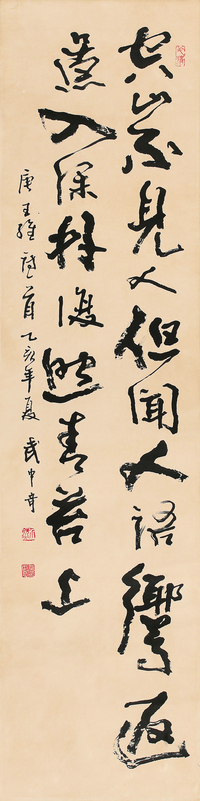 空山不見人但聞人語響返
景入深林復照青苔上
唐王維詩一首乙亥年夏武中奇